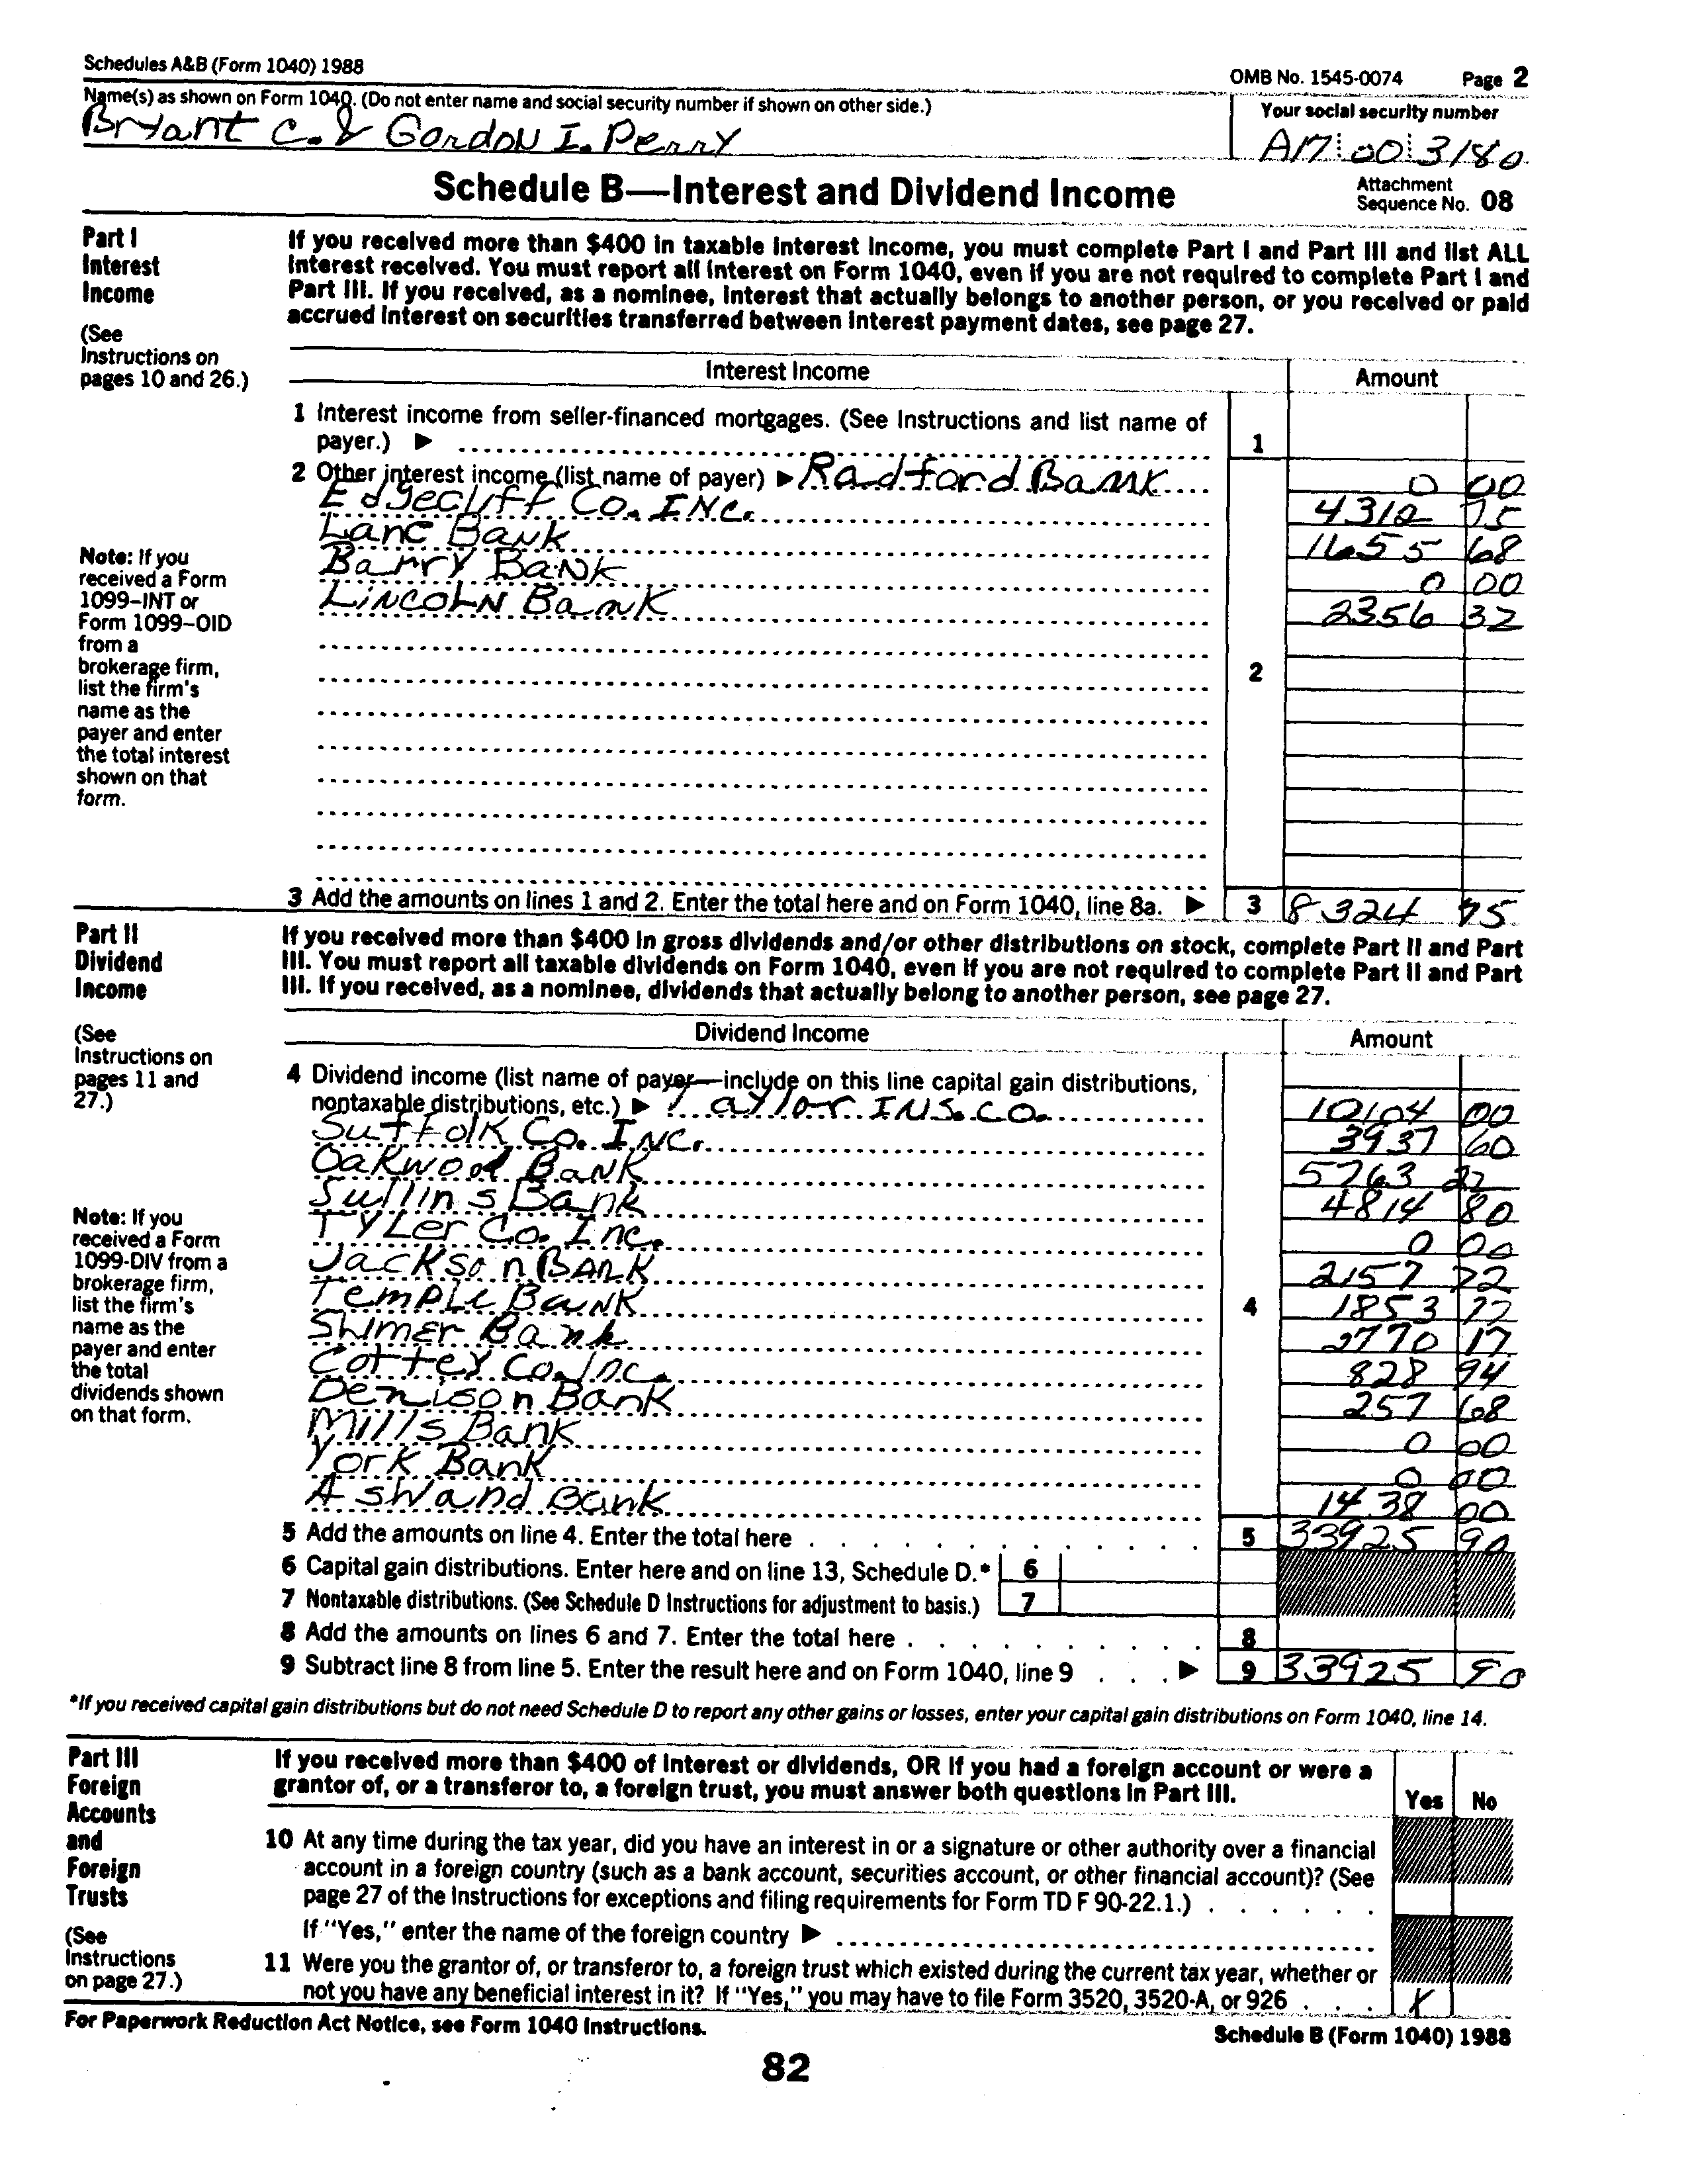 Schedules A&B (Form 1040) 1988
OMB No. 1545-0074 Page 2
Name(s) as shown on Form 1040. (Do not enter name and social security number if shown on other side.)
Your social security number
Bryant C. & Gordon I. Perry
A17 00 3180
Schedule B—Interest and Dividend Income
Attachment
Sequence No. 08
Part I
Interest
Income
(See
Instructions on
pages 10 and 26.)
If you received more than $400 in taxable interest income, you must complete Part I and Part III and list ALL
interest received. You must report all interest on Form 1040, even if you are not required to complete Part I and
Part III. If you received, as a nominee, interest that actually belongs to another person, or you received or paid
accrued interest on securities transferred between interest payment dates, see page 27.
Interest Income Amount
1 Interest income from seller-financed mortgages. (See Instructions and list name of
payer.) ▶ 1
2 Other interest income (list name of payer) ▶ Radford Bank 0 00
Edgecliff Co. INC. 4312 75
Lane Bank 1655 68
Barry Bank 0 00
LINCOLN Bank 2356 32
2
Note: If you
received a Form
1099-INT or
Form 1099-OID
from a
brokerage firm,
list the firm's
name as the
payer and enter
the total interest
shown on that
form.
3 Add the amounts on lines 1 and 2. Enter the total here and on Form 1040, line 8a. ▶ 3 8324 75
Part II
Dividend
Income
(See
Instructions on
pages 11 and
27.)
If you received more than $400 in gross dividends and/or other distributions on stock, complete Part II and Part
III. You must report all taxable dividends on Form 1040, even if you are not required to complete Part II and Part
III. If you received, as a nominee, dividends that actually belong to another person, see page 27.
Dividend Income Amount
4 Dividend income (list name of payer—include on this line capital gain distributions,
nontaxable distributions, etc.) ▶ Taylor INS. CO. 10104 00
Suffolk Co. INC. 3937 60
Oakwood Bank 5763 27
Sullins Bank 4814 80
TYLer Co. Inc. 0 00
Jackson BANK 2157 22
Temple Bank 1853 22
4
Shimer Bank 2770 17
Cottey Co. Inc. 828 94
Denison Bank 257 68
Mills Bank 0 00
York Bank 0 00
Ashland Bank 1438 00
Note: If you
received a Form
1099-DIV from a
brokerage firm,
list the firm's
name as the
payer and enter
the total
dividends shown
on that form.
5 Add the amounts on line 4. Enter the total here 5 33925 90
6 Capital gain distributions. Enter here and on line 13, Schedule D.* 6
7 Nontaxable distributions. (See Schedule D Instructions for adjustment to basis.) 7
8 Add the amounts on lines 6 and 7. Enter the total here 8
9 Subtract line 8 from line 5. Enter the result here and on Form 1040, line 9 ▶ 9 33925 90
*If you received capital gain distributions but do not need Schedule D to report any other gains or losses, enter your capital gain distributions on Form 1040, line 14.
Part III
Foreign
Accounts
and
Foreign
Trusts
(See
Instructions
on page 27.)
If you received more than $400 of interest or dividends, OR if you had a foreign account or were a
grantor of, or a transferor to, a foreign trust, you must answer both questions in Part III.
Yes No
10 At any time during the tax year, did you have an interest in or a signature or other authority over a financial
account in a foreign country (such as a bank account, securities account, or other financial account)? (See
page 27 of the Instructions for exceptions and filing requirements for Form TD F 90-22.1.)
If "Yes," enter the name of the foreign country ▶
11 Were you the grantor of, or transferor to, a foreign trust which existed during the current tax year, whether or
not you have any beneficial interest in it? If "Yes," you may have to file Form 3520, 3520-A, or 926 X
For Paperwork Reduction Act Notice, see Form 1040 Instructions.
Schedule B (Form 1040) 1988
82